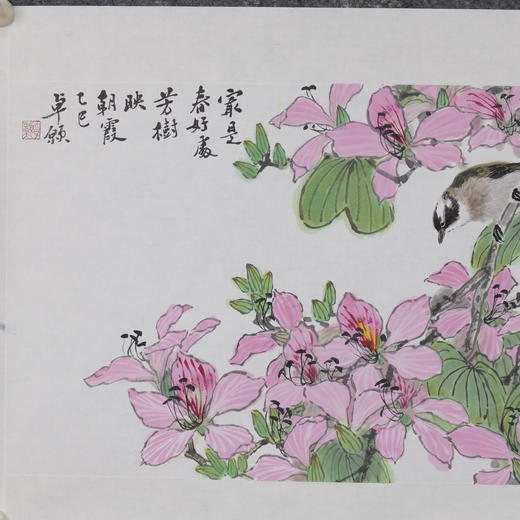 最是
春好處
芳樹
映
朝霞
乙巳
卓鎵